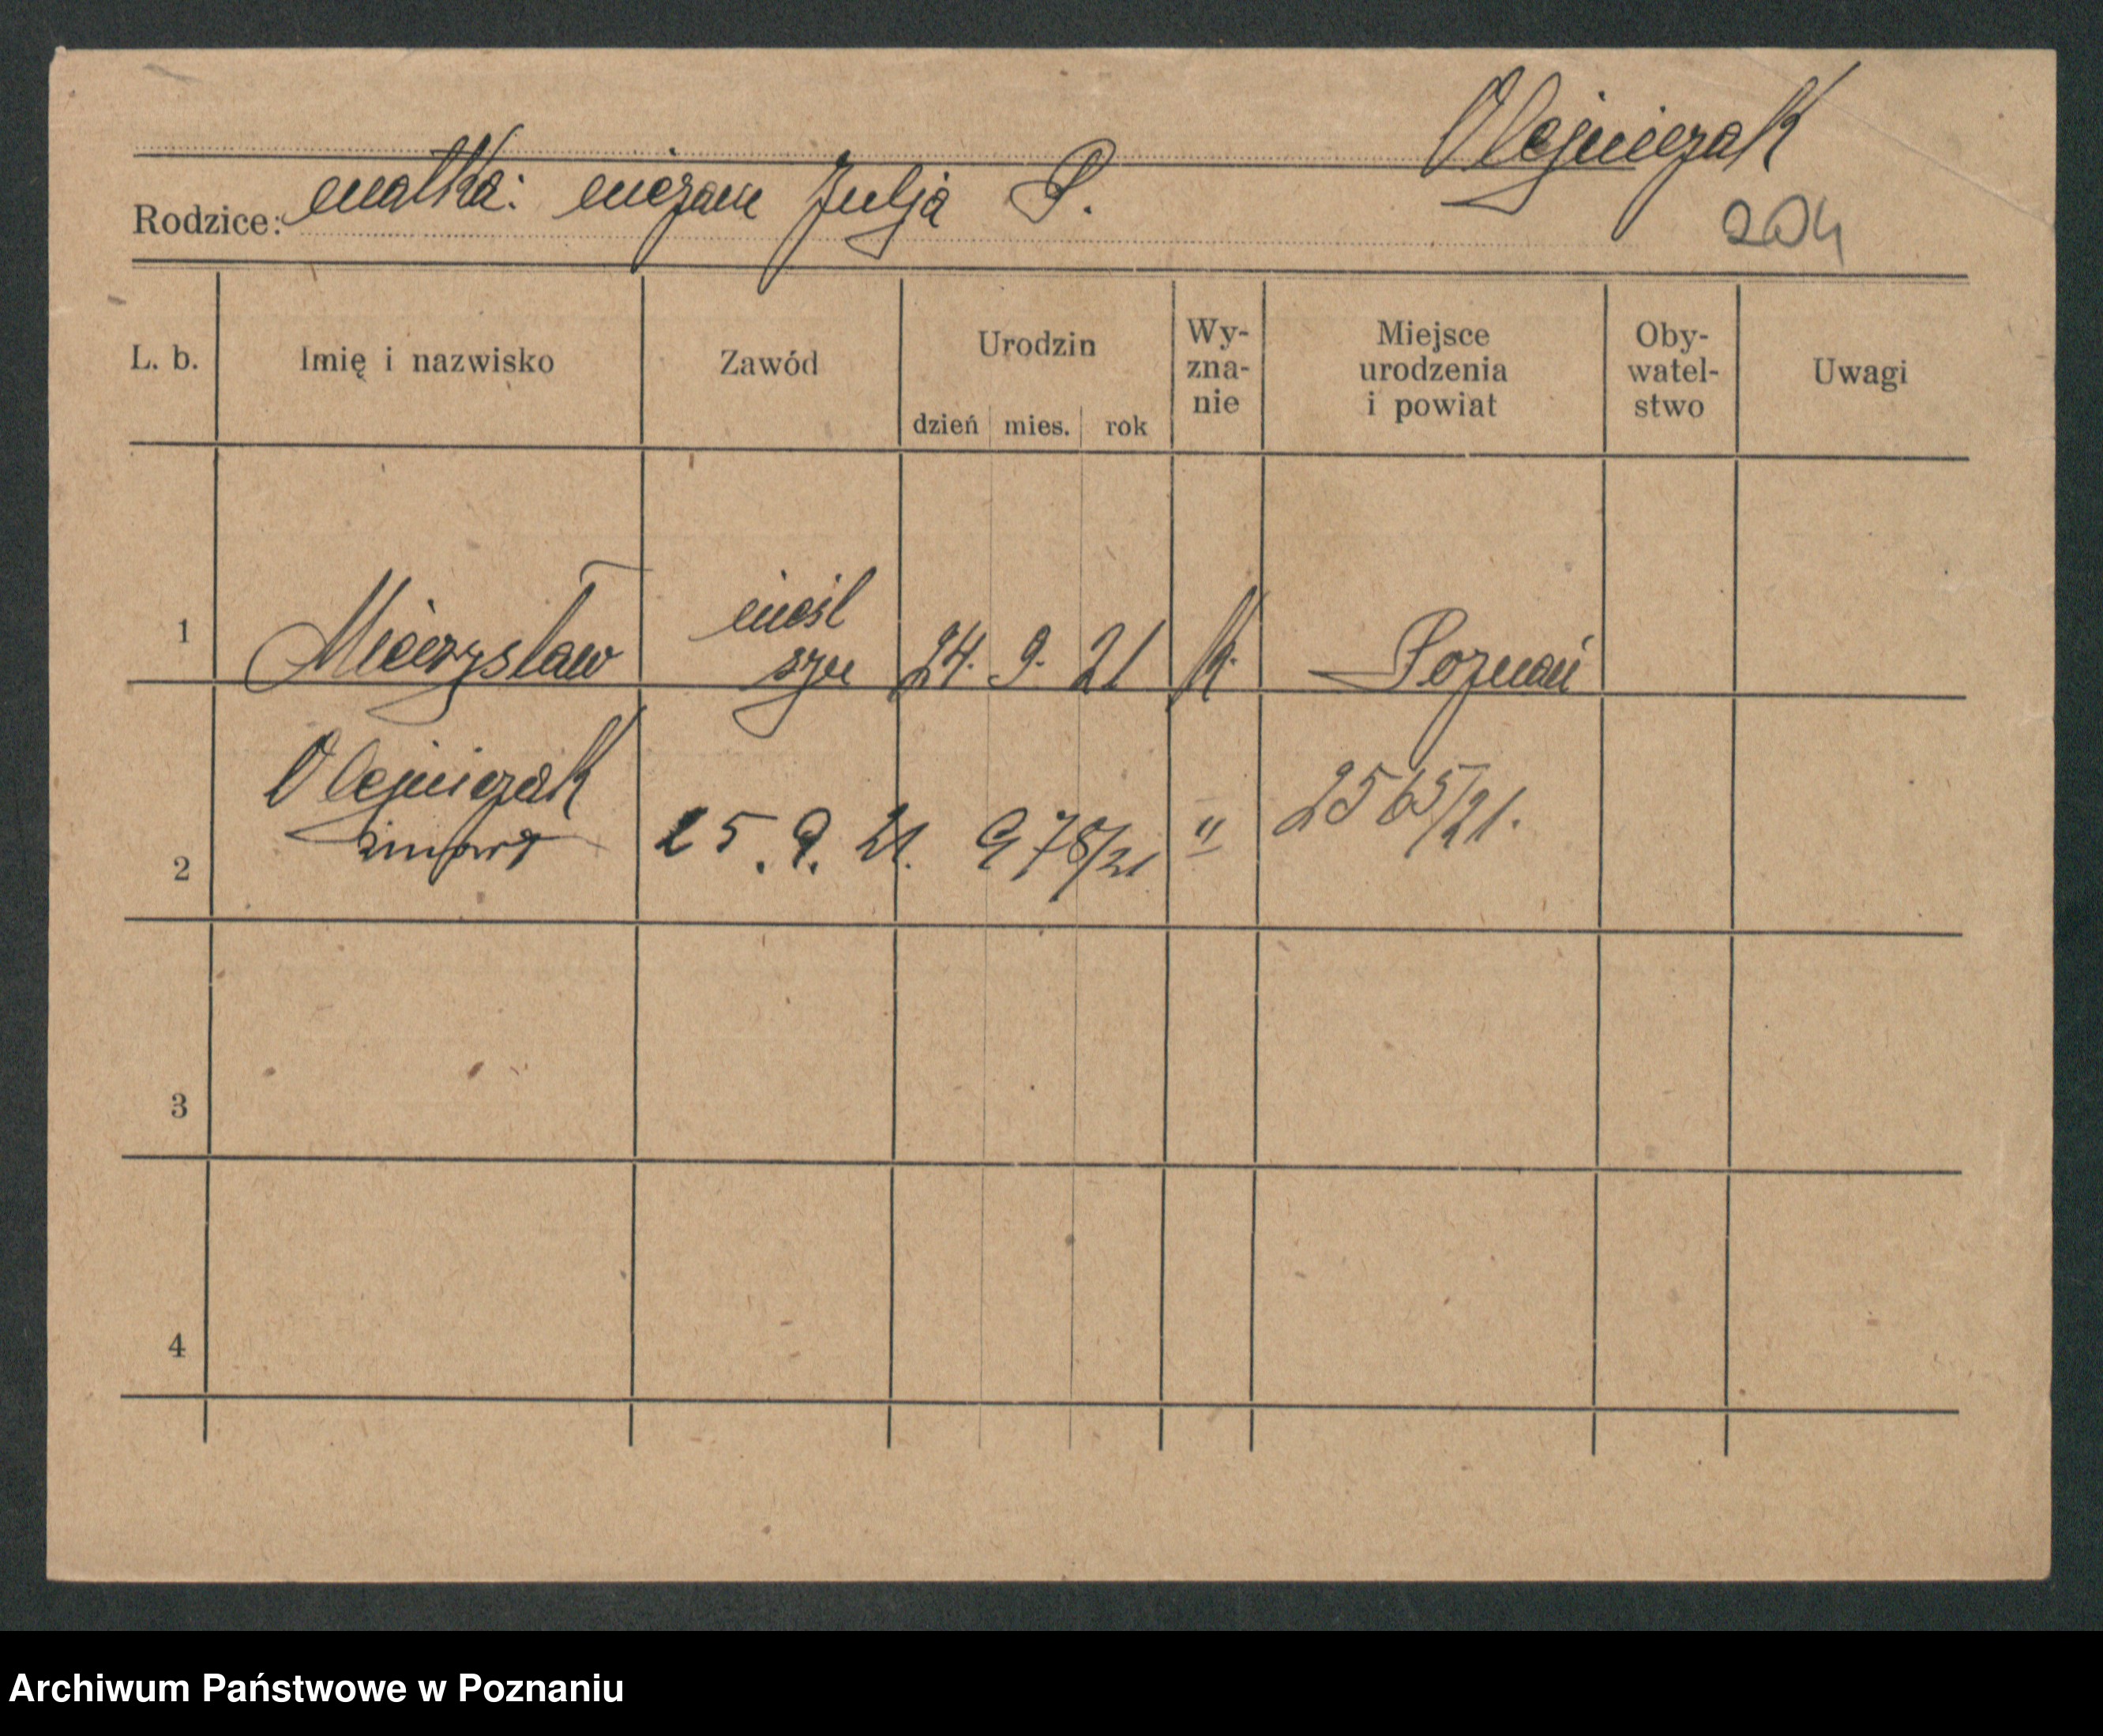 Olejniczak
Rodzice: matka: niezam Julja O.
204
L. b. Imię i nazwisko Zawód Urodzin Wy-zna-nie Miejsce urodzenia i powiat Oby-watel-stwo Uwagi
dzień mies. rok
1 Mieczysław nieśl szn 24. 9. 21 k. Poznań
Olejniczak
2 zmarł 25. 9. 21. 978/21 " 2565/21.
3
4
Archiwum Państwowe w Poznaniu